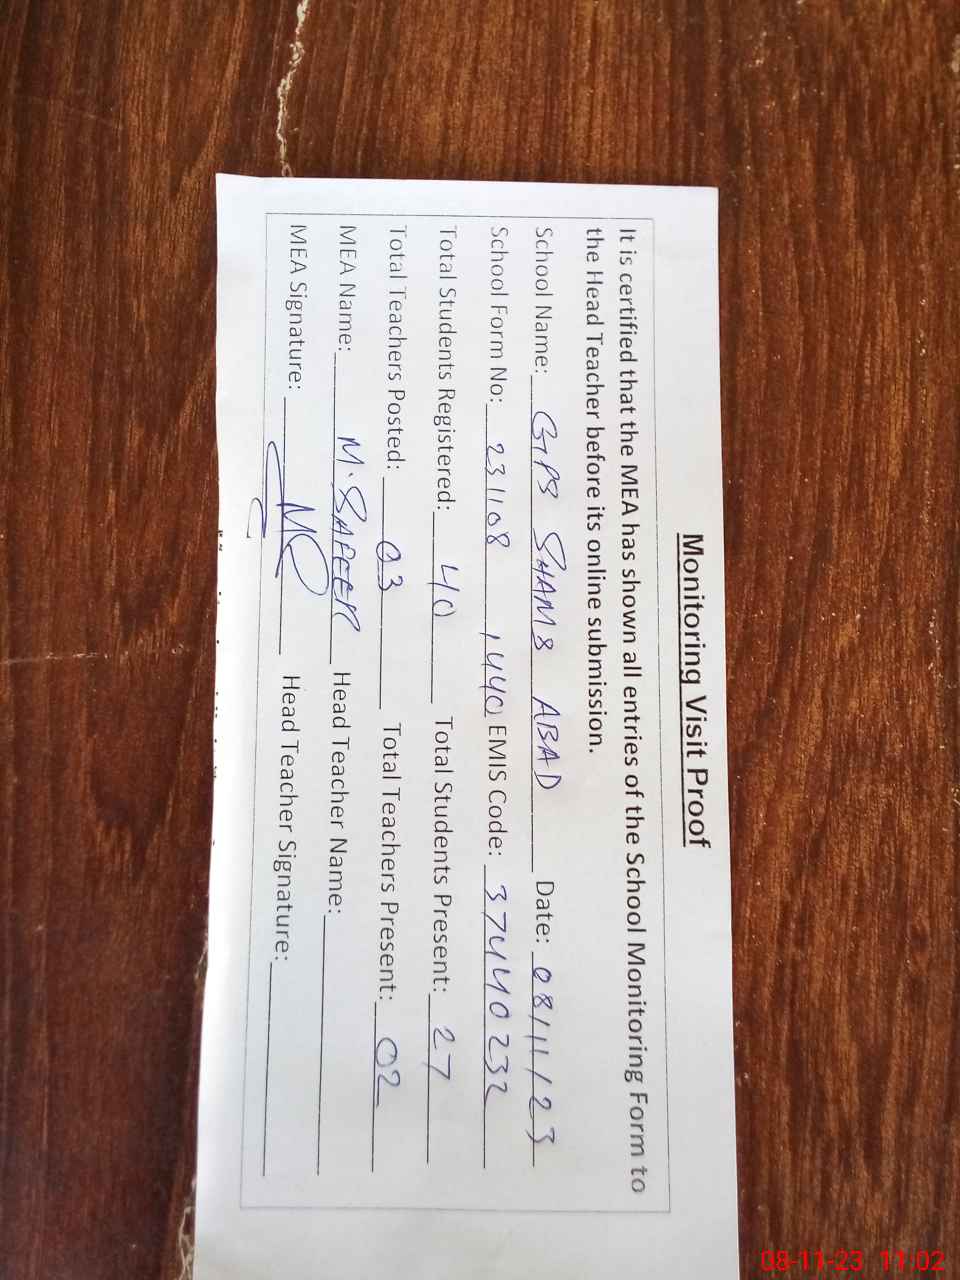 Monitoring Visit Proof
It is certified that the MEA has shown all entries of the School Monitoring Form to
the Head Teacher before its online submission.
School Name: GPS SHAMS ABAD Date: 08/11/23
School Form No: 231108 1440 EMIS Code: 37440232
Total Students Registered: 40 Total Students Present: 27
Total Teachers Posted: 03 Total Teachers Present: 02
MEA Name: M. SAFEER Head Teacher Name:
MEA Signature: Head Teacher Signature:
08-11-23 11:02